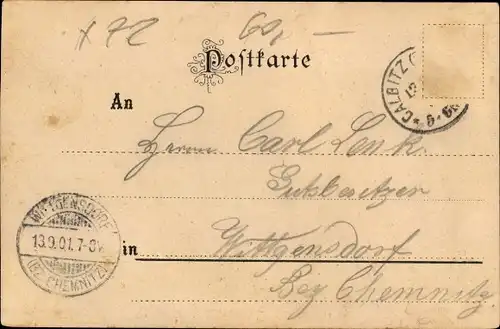 x 72 60,—
Postkarte
An
Herrn Carl Lenk
Gutsbesitzer
in Wittgensdorf
Bez Chemnitz
WITTGENSDORF
13.9.01. 7-8V.
(BZ. CHEMNITZ)
CALBITZ